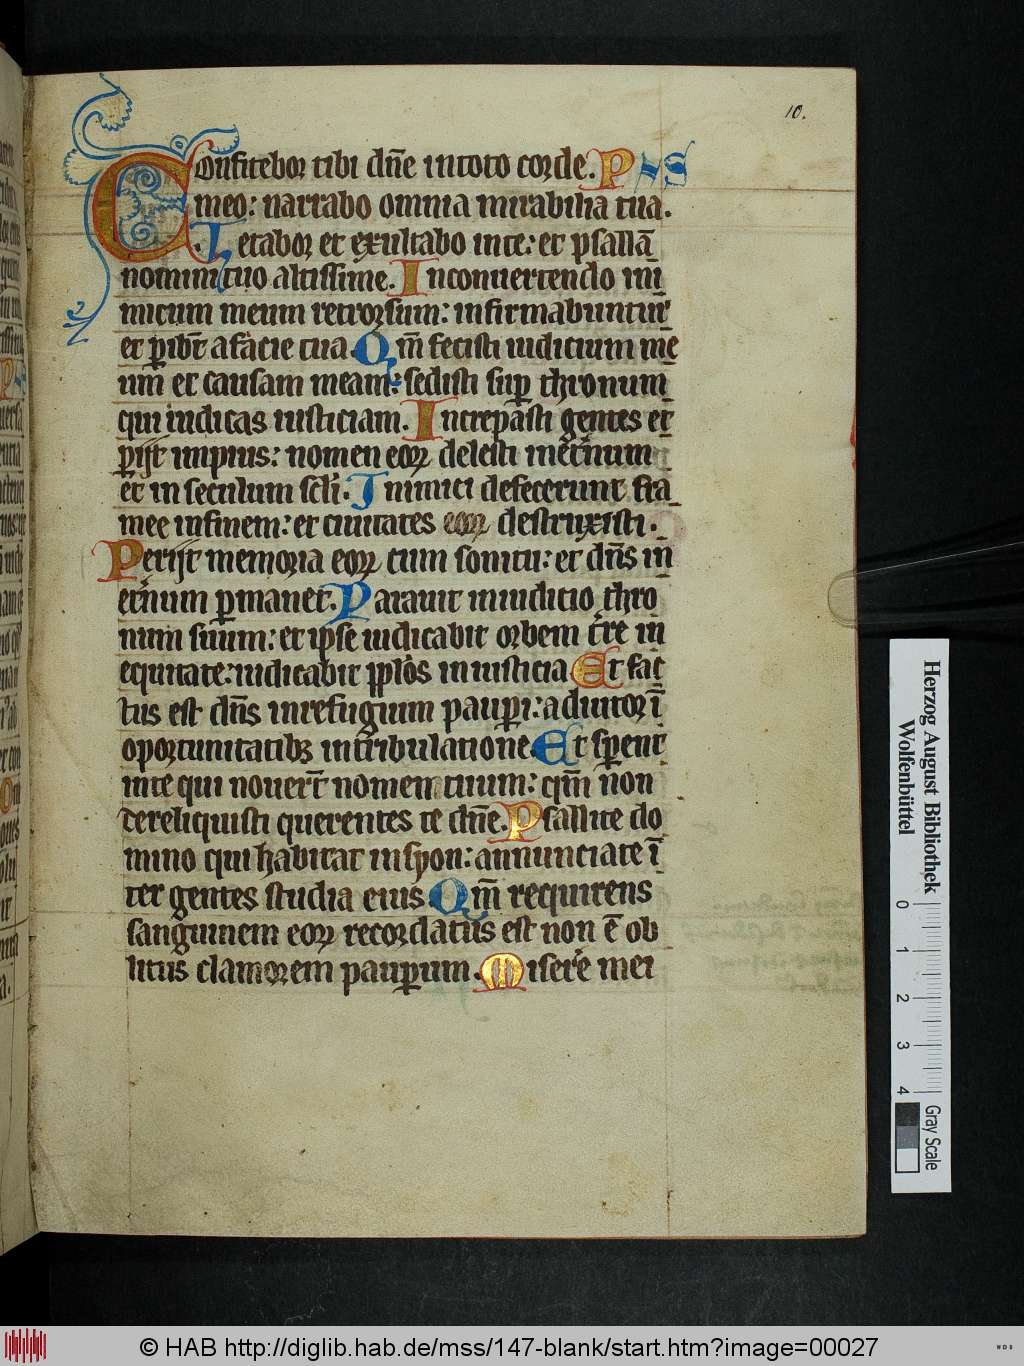 10.
Confitebor tibi dn̄e in toto corde. PS
meo: narrabo omnia mirabilia tua.
Letabor et exultabo in te: et psallā
nomini tuo altissime. In conuertendo ini
micum meum retrorsum: infirmabuntur
et ꝑibūt a facie tua. Qm̄ fecisti iudicium me
um et causam meam: sedisti suꝑ thronum
qui iudicas iusticiam. Increpasti gentes et
ꝑijt impius: nomen eoꝝ delesti in et̄num
et in seculum sc̄li. Inimici defecerunt fra
mee in finem: et ciuitates eoꝝ destruxisti.
Perijt memoria eoꝝ cum sonitu: et dn̄s in
et̄num ꝑmanet. Parauit in iudicio thro
num suum: et ipse iudicabit orbem t̄re in
equitate: iudicabit pp̄los in iusticia Et fac
tus est dn̄s in refugium pauꝑi: adiutor ī
oportunitatibꝫ in t̄bulatione. Et sꝑent
in te qui nouer̄t nomen tuum: qm̄ non
tereliquisti querentes te dn̄e. Psallite do
mino qui habitat in syon: annunciate ī
ter gentes studia eius Qm̄ requirens
sanguinem eoꝝ recordatus est non ē ob
litus clamorem pauꝑum. Miser̄e mei
Herzog August Bibliothek
Wolfenbüttel
0 1 2 3 4
Gray Scale
© HAB http://diglib.hab.de/mss/147-blank/start.htm?image=00027